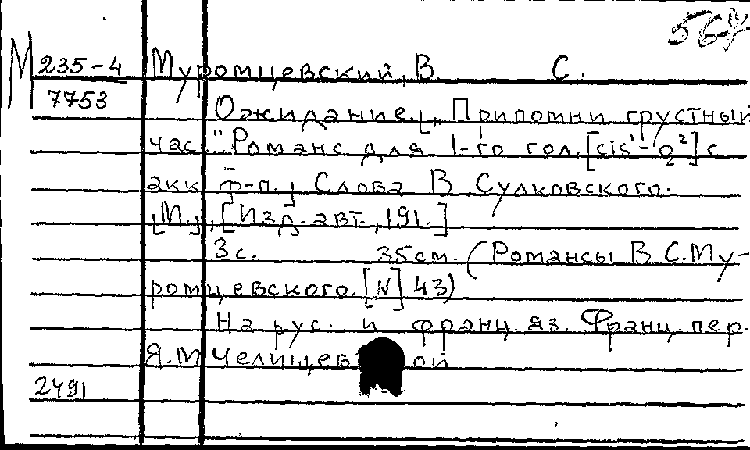 567
М 235-4 Муромцевский, В. С.
7753
Ожидание. [„Припомни грустный
час..." Романс для 1-го гол. [cis¹-g²] с
акк. ф-п.] Слова В. Сулковского.
[М.], [Изд. авт., 191.]
3 с. 35 см. (Романсы В. С. Му-
ромцевского. [N] 43)
На рус. и франц. яз. Франц. пер.
Я. М. Челищев ой
2491